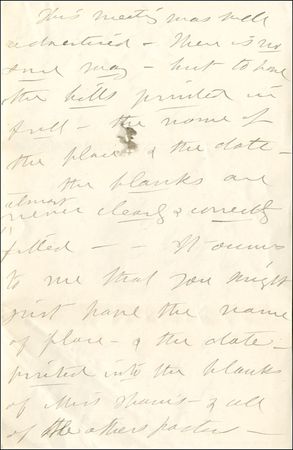 This meeting was well
advertised - There is no
sure way - but to have
the bills printed in
full - the name of
the place & the date -
the blanks are
almost
never clearly & correctly
filled - - It occurs
to me that you might
just have the name
of place - & the date -
printed into the blanks
of Miss - & all
of the others posters -